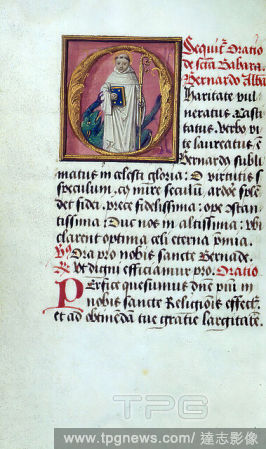 Sequit~ Oratio
de scta Babara.
Bernardo Alba
haritate vul
neratus Casti
tatus. verbo vi
te laureatus. e
Bernardo subli
matus in celesti gloria: O virtutis s
speculum, co mire seculum, ardor splen
det fidei, prece fidelissima: ope
tissima: Duc nos in altissima: vbi
clarent optima celi eterna pmia.
Ora pro nobis sancte Bernarde.
Vt digni efficiamur pro. Oratio.
PErfice quesumus dne pium in
nobis sancte Religionis effectu
et ad obtinedam tue gratie largitate.
TPG
www.tpgnews.com / 達志影像